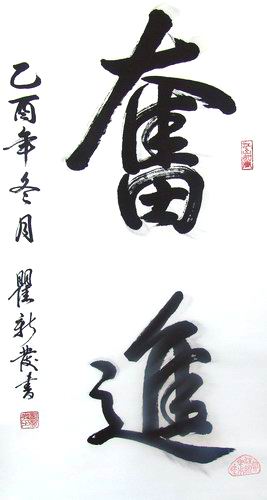 奮
進
乙酉年冬月 瞿新發書